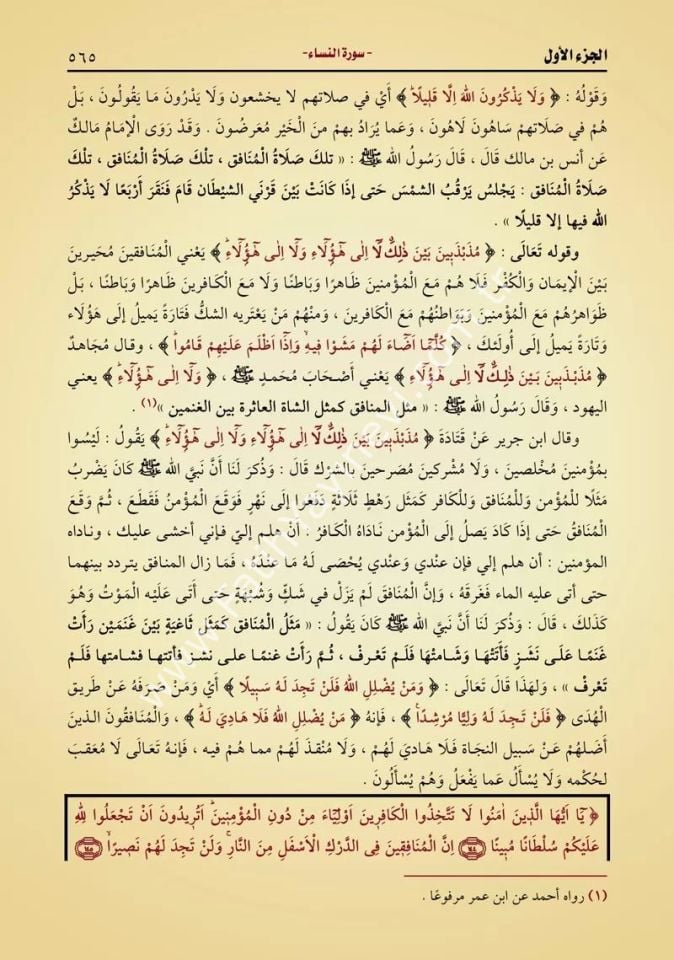 الجزء الأول
- سورة النساء-
٥٦٥
وَقَوْلُهُ : ﴿ وَلَا يَذْكُرُونَ اللهَ اِلَّا قَلِيلًا ﴾ أَيْ في صلاتهم لا يخشعون وَلَا يَدْرُونَ مَا يَقُولُونَ ، بَلْ
هُمْ في صَلَاتهمْ سَاهُونَ لَاهُونَ ، وَعَما يُرَادُ بهمْ منَ الْخَيْر مُعَرضُونَ . وَقَدْ رَوَى الْإمَامُ مَالكٌ
عَن أنس بن مالك قَالَ ، قَالَ رَسُولُ الله ﷺ : « تلكَ صَلَاةُ الْمُنَافق ، تلْكَ صَلَاةُ الْمُنَافق ، تلْكَ
صَلَاةُ الْمُنَافق : يَجْلسُ يَرْقُبُ الشمْسَ حَتى إذَا كَانَتْ بَيْنَ قَرْنَي الشيْطَان قَامَ فَنَقَرَ أَرْبَعًا لَا يَذْكُرُ
الله فيها إلا قليلًا » .
وقوله تَعَالَى : ﴿ مُذَبْذَبِينَ بَيْنَ ذٰلِكَ لَا اِلٰى هٰٓؤُلَاءِ وَلَا اِلٰى هٰٓؤُلَاءِ ﴾ يَعْني الْمُنَافقينَ مُحَيرينَ
بَيْنَ الْإيمَان وَالْكُفْر فَلَا هُمْ مَعَ الْمُؤْمنينَ ظَاهرًا وَبَاطنًا وَلَا مَعَ الْكَافرينَ ظَاهرًا وَبَاطنًا ، بَلْ
ظَوَاهرُهُمْ مَعَ الْمُؤْمنينَ وَبَوَاطنُهُمْ مَعَ الْكَافرينَ ، وَمنْهُمْ مَنْ يَعْتَريه الشكُّ فَتَارَةً يَميلُ إلَى هَؤُلَاء
وَتَارَةً يَميلُ إلَى أُولَئكَ ، ﴿ كُلَّمَا اَضَاءَ لَهُمْ مَشَوْا فِيهِ وَاِذَا اَظْلَمَ عَلَيْهِمْ قَامُوا ﴾ ، وقال مُجَاهدٌ
﴿ مُذَبْذَبِينَ بَيْنَ ذٰلِكَ لَا اِلٰى هٰٓؤُلَاءِ ﴾ يَعْني أَصْحَابَ مُحَمدٍ ﷺ ، ﴿ وَلَا اِلٰى هٰٓؤُلَاءِ ﴾ يعني
اليهود ، وَقَالَ رَسُولُ الله ﷺ : « مثل المنافق كمثل الشاة العائرة بين الغنمين »(١) .
وقال ابن جرير عَنْ قَتَادَةَ ﴿ مُذَبْذَبِينَ بَيْنَ ذٰلِكَ لَا اِلٰى هٰٓؤُلَاءِ وَلَا اِلٰى هٰٓؤُلَاءِ ﴾ يَقُولُ : لَيْسُوا
بمُؤْمنينَ مُخْلصينَ ، وَلَا مُشْركينَ مُصَرحينَ بالشرْك قَالَ : وَذُكرَ لَنَا أَنَّ نَبيَّ الله ﷺ كَانَ يَضْربُ
مَثَلًا للْمُؤْمن وَللْمُنَافق وَللْكَافر كَمَثَل رَهْطٍ ثَلَاثَةٍ دَفَعُوا إلَى نَهْرٍ فَوَقَعَ الْمُؤْمنُ فَقَطَعَ ، ثُمَّ وَقَعَ
الْمُنَافقُ حَتى إذَا كَادَ يَصلُ إلَى الْمُؤْمن نَادَاهُ الْكَافرُ : أن هلم إليّ فإني أخشى عليك ، وناداه
المؤمنين : أن هلم إلي فإن عندي وَعندي يُحْصَى لَهُ مَا عنْدَهُ ، فَمَا زال المنافق يتردد بينهما
حتى أتى عليه الماء فَغَرقَهُ ، وَإنَّ الْمُنَافقَ لَمْ يَزَلْ في شَكٍّ وَشُبْهَةٍ حَتى أَتَى عَلَيْه الْمَوْتُ وَهُوَ
كَذَلكَ ، قَالَ : وَذُكرَ لَنَا أَنَّ نَبيَّ الله ﷺ كَانَ يَقُولُ : « مَثَلُ الْمُنَافق كَمَثَل ثَاغيَةٍ بَيْنَ غَنَمَيْن رَأَتْ
غَنَمًا عَلَى نَشَزٍ فَأَتَتْهَا وَشَامتْهَا فَلَمْ تَعْرفْ ، ثُمَّ رَأَتْ غَنمًا على نشزٍ فأتتها فشامتها فَلَمْ
تَعرفْ » ، وَلهَذَا قَالَ تَعَالَى : ﴿ وَمَنْ يُضْلِلِ اللهُ فَلَنْ تَجِدَ لَهُ سَبِيلًا ﴾ أَيْ وَمَنْ صَرَفَهُ عَنْ طَريق
الْهُدَى ﴿ فَلَنْ تَجِدَ لَهُ وَلِيًّا مُرْشِدًا ﴾ ، فَإنهُ ﴿ مَنْ يُضْلِلِ اللهُ فَلَا هَادِيَ لَهُ ﴾ ، وَالْمُنَافقُونَ الذينَ
أَضَلهُمْ عَنْ سَبيل النجَاة فَلَا هَاديَ لَهُمْ ، وَلَا مُنْقذَ لَهُمْ مما هم فيه ، فَإنهُ تَعَالَى لَا مُعَقبَ
لحُكْمه وَلَا يُسْأَلُ عَما يَفْعَلُ وَهُمْ يُسْأَلُونَ .
﴿ يَا اَيُّهَا الَّذِينَ اٰمَنُوا لَا تَتَّخِذُوا الْكَافِرِينَ اَوْلِيَاءَ مِنْ دُونِ الْمُؤْمِنِينَ اَتُرِيدُونَ اَنْ تَجْعَلُوا لِلّٰهِ
عَلَيْكُمْ سُلْطَانًا مُبِينًا ﴿١٤٤﴾ اِنَّ الْمُنَافِقِينَ فِي الدَّرْكِ الْاَسْفَلِ مِنَ النَّارِ وَلَنْ تَجِدَ لَهُمْ نَصِيرًا ﴿١٤٥﴾
(١) رواه أحمد عن ابن عمر مرفوعًا .